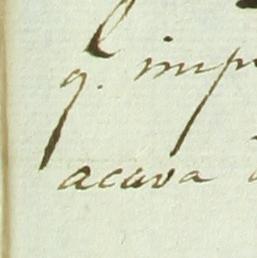 q. imp
acava